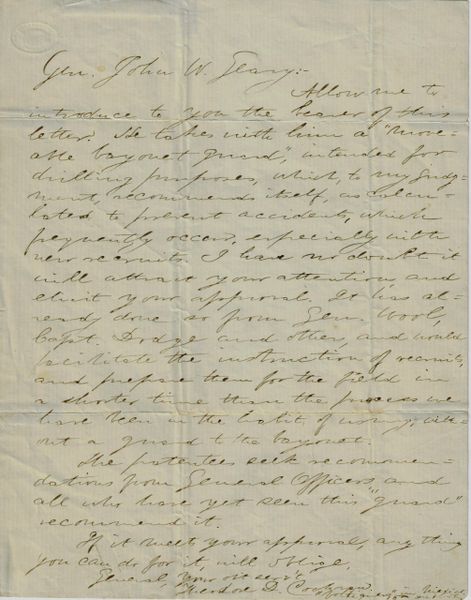 Gen. John W. Geary:-
Allow me to
introduce to you the bearer of this
letter. He takes with him a "move-
able bayonet guard", intended for
drilling purposes, which, to my judg-
ment, recommends itself, as calcu-
lated to prevent accidents, which
frequently occur, especially with
new recruits. I have no doubt it
will attract your attention and
elicit your approval. It has al-
ready done so from Gens. Wool,
Capt. Dodge and other, and would
facilitate the instruction of recruits,
and prepare them for the field in
a shorter time than the process we
have been in the habit of using, with-
out a guard to the bayonet.
The patentees seek recommen-
dations from General Officers, and
all who have yet seen this "guard"
recommend it.
If it meet your approval, any thing
you can do for it, will oblige,
General, your obt servt.
Theodore D. Cochran
in Mexico